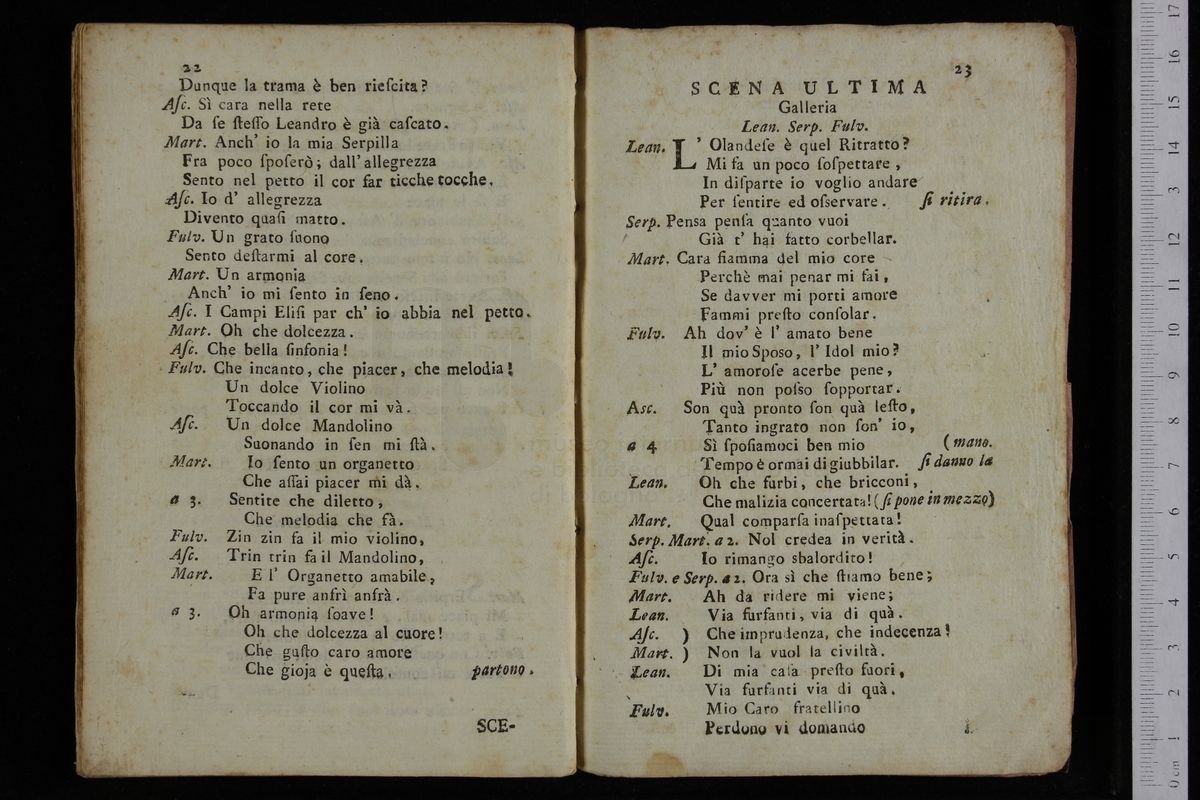 22
Dunque la trama è ben rieſcita?
Aſc. Sì cara nella rete
Da ſe ſteſſo Leandro è già caſcato.
Mart. Anch' io la mia Serpilla
Fra poco ſpoſerò; dall' allegrezza
Sento nel petto il cor far ticche tocche.
Aſc. Io d' allegrezza
Divento quaſi matto.
Fulv. Un grato ſuono
Sento deſtarmi al core.
Mart. Un armonia
Anch' io mi ſento in ſeno.
Aſc. I Campi Eliſi par ch' io abbia nel petto.
Mart. Oh che dolcezza.
Aſc. Che bella ſinfonia!
Fulv. Che incanto, che piacer, che melodia!
Un dolce Violino
Toccando il cor mi và.
Aſc. Un dolce Mandolino
Suonando in ſen mi ſtà.
Mart. Io ſento un organetto
Che aſſai piacer mi dà.
a 3. Sentite che diletto,
Che melodia che fà.
Fulv. Zin zin fa il mio violino,
Aſc. Trin trin fa il Mandolino,
Mart. E l' Organetto amabile,
Fa pure anfrì anfrà.
a 3. Oh armonia ſoave!
Oh che dolcezza al cuore!
Che guſto caro amore
Che gioja è queſta. partono.
SCE-
23
SCENA ULTIMA
Galleria
Lean. Serp. Fulv.
Lean. L' Olandeſe è quel Ritratto?
Mi fa un poco ſoſpettare,
In diſparte io voglio andare
Per ſentire ed oſservare. ſi ritira.
Serp. Penſa penſa quanto vuoi
Già t' hai fatto corbellar.
Mart. Cara fiamma del mio core
Perchè mai penar mi fai,
Se davver mi porti amore
Fammi preſto conſolar.
Fulv. Ah dov' è l' amato bene
Il mio Sposo, l' Idol mio?
L' amoroſe acerbe pene,
Più non poſso ſopportar.
Asc. Son quà pronto ſon quà leſto,
Tanto ingrato non ſon' io,
a 4 Sì ſpoſiamoci ben mio (mano.
Tempo è ormai di giubbilar. ſi danno la
Lean. Oh che furbi, che bricconi,
Che malizia concertata! (ſi pone in mezzo)
Mart. Qual comparſa inaſpettata!
Serp. Mart. a 2. Nol credea in verità.
Aſc. Io rimango sbalordito!
Fulv. e Serp. a 2. Ora sì che ſtiamo bene;
Mart. Ah da ridere mi viene;
Lean. Via furfanti, via di quà.
Aſc. ) Che imprudenza, che indecenza!
Mart. ) Non la vuol la civiltà.
Lean. Di mia caſa preſto fuori,
Via furfanti via di quà.
Fulv. Mio Caro fratellino
Perdono vi domando